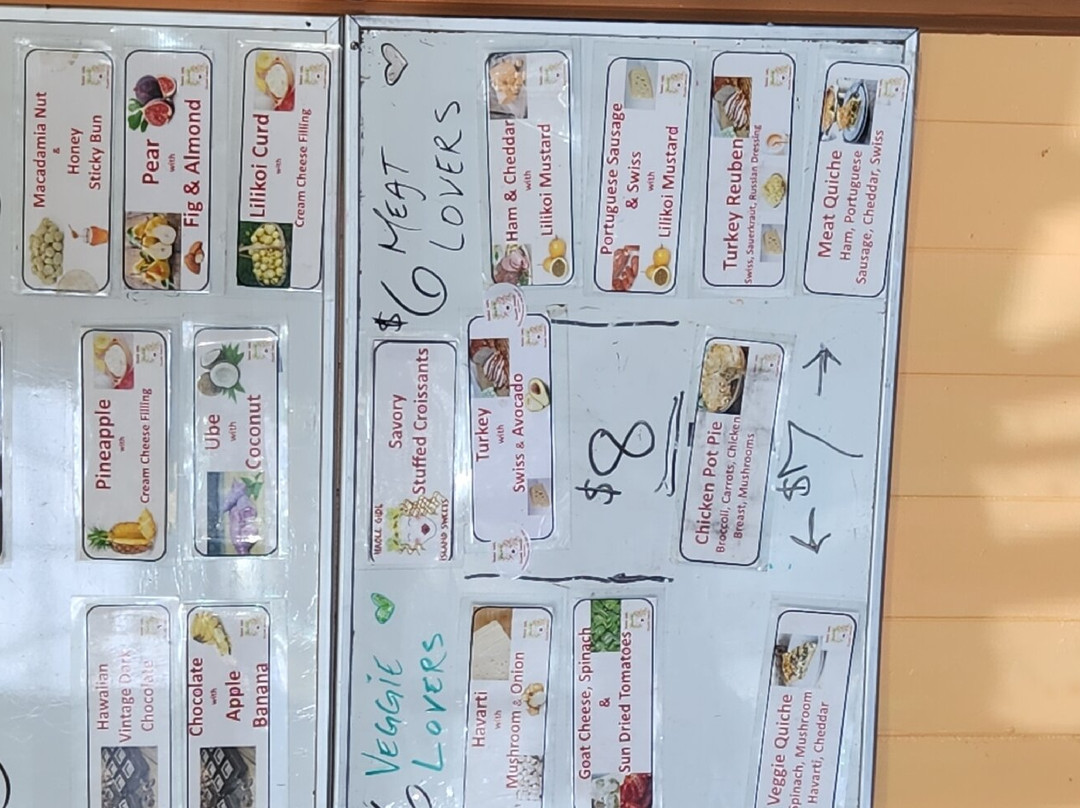 Hawaiian
Vintage Dark
Chocolate
Chocolate
with
Apple
Banana
Pineapple
with
Cream Cheese Filling
Ube
with
Coconut
Macadamia Nut
&
Honey
Sticky Bun
Pear
with
Fig & Almond
Lilikoi Curd
with
Cream Cheese Filling
VEGGIE
LOVERS
Havarti
with
Mushroom & Onion
Goat Cheese, Spinach
&
Sun Dried Tomatoes
Veggie Quiche
Spinach, Mushroom
Havarti, Cheddar
Savory
Stuffed Croissants
HAOLE GIRL
ISLAND SWEETS
Turkey
with
Swiss & Avocado
$8
Chicken Pot Pie
Broccoli, Carrots, Chicken
Breast, Mushrooms
← $7 →
$6 MEAT
LOVERS
Ham & Cheddar
with
Lilikoi Mustard
Portuguese Sausage
& Swiss
with
Lilikoi Mustard
Turkey Reuben
Swiss, Sauerkraut, Russian Dressing
Meat Quiche
Ham, Portuguese
Sausage, Cheddar, Swiss